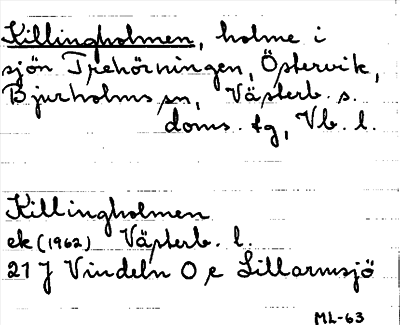 Killingholmen, holme i
sjön Trehörningen, Östervik,
Bjurholms sn, Västerb. s.
doms. tg, Vb. l.
Killingholmen
ek (1962) Västerb. l.
21 J Vindeln O, e Lillarmsjö
ML-63